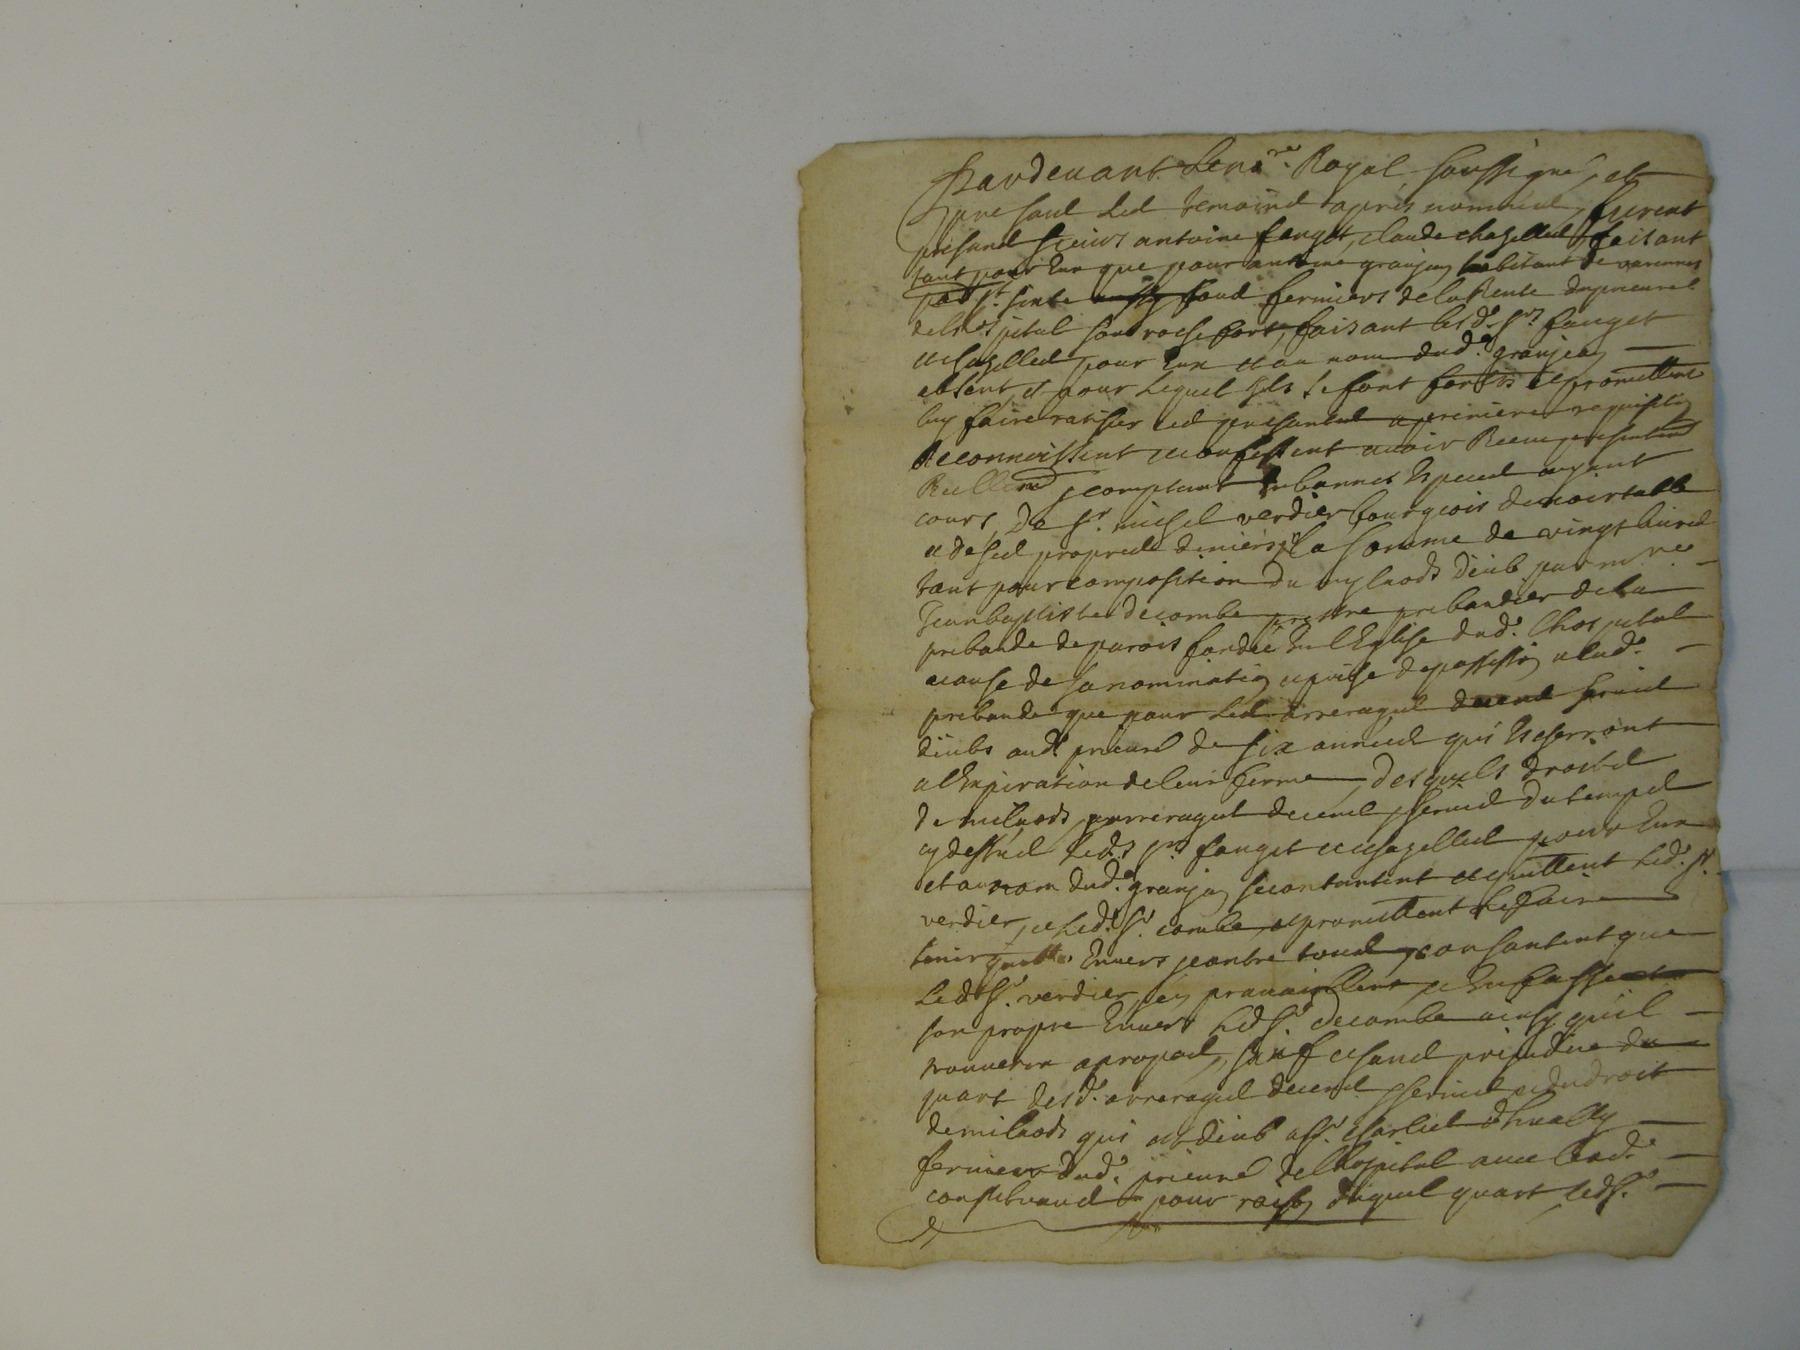 Pardevant le no.re Royal soussigné, et
presans les temoins apres nommés, furent
presans sieurs antoine fanget, claude chazelles faisant
tant pour Eux que pour antoine granjon habitant de varennes
par.sse St. fermiers de la Rente du prieuré
de lhospital sou rochefort, faisant les d. srs. fanget
et chazelles pour Eux et au nom dud. granjon
absent, et pour lequel Ils se font forts et promettent
luy faire ratifier les presantes a premiere requisition
Reconnoissent et confessent avoir Receu presentem.t
Reellem.t comptant En bonnes Especes ayant
cours, De sr. michel verdier bourgeois de noirtable
et de ses propres deniers la somme de vingt livres
tant pour composition du my laods deub par m.re
Jean baptiste decombe prestre prebandier de la
prebande de parois fondée En l'Eglise dud. lhospital
a cause de sa nomination et prise de possession a lad.
prebande que pour les arrerages de cens servis
deubs aud. prieuré de six années qui Escherront
a l'Expiration de leur ferme, desquels droits
de milaods, arrerages de cens servis du temps
cy dessus led. srs. fanget et chazelles pour Eux
et au nom dud. granjon se contantent et quittent led. sr.
verdier, et led. sr. combe, et promettent le faire
tenir quitte Envers contre tous, consantent que
led. sr. verdier, et En fasse
son propre Envers led. sr. decombe ainsy quil
trouvera a propos, sauf et sans prejudice du
quart desd. arrerages de cens servis et du droit
de milaods qui est deub a sr. charles
fermier dud. prieuré de lhospital avec lesd.
pour raison duquel quart led. sr.